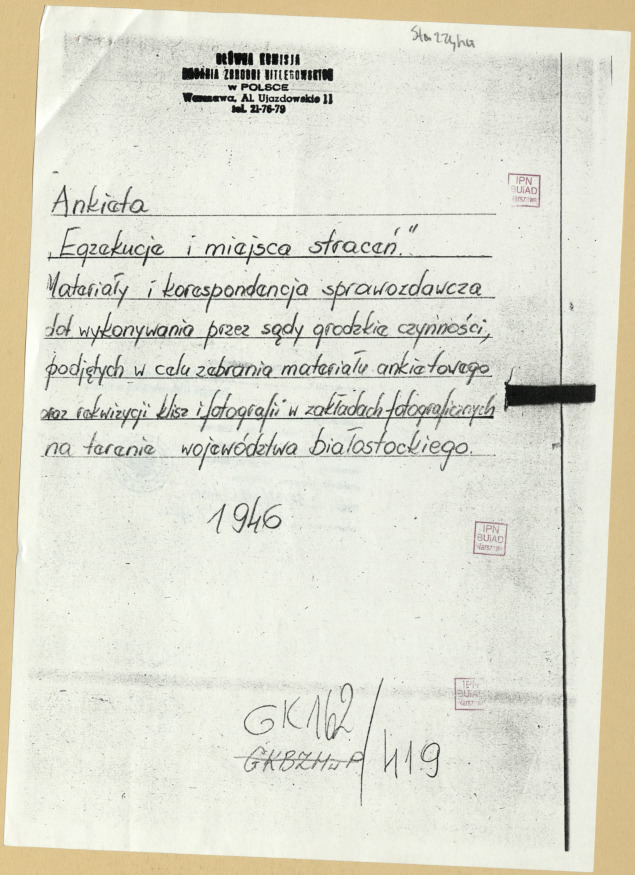 GŁÓWNA KOMISJA
BADANIA ZBRODNI HITLEROWSKICH
W POLSCE
Warszawa, Al. Ujazdowskie 11
tel. 21-76-79
IPN
BUiAD
Warszawa
Ankieta
„Egzekucje i miejsca straceń."
Materiały i korespondencja sprawozdawcza
dot wykonywania przez sądy grodzkie czynności,
podjętych w celu zebrania materiału ankietowego
oraz rekwizycji klisz i fotografii w zakładach fotograficznych
na terenie województwa białostockiego.
1946
IPN
BUiAD
Warszawa
IPN
BUiAD
Warszawa
GK 162/419
GKBZHwP